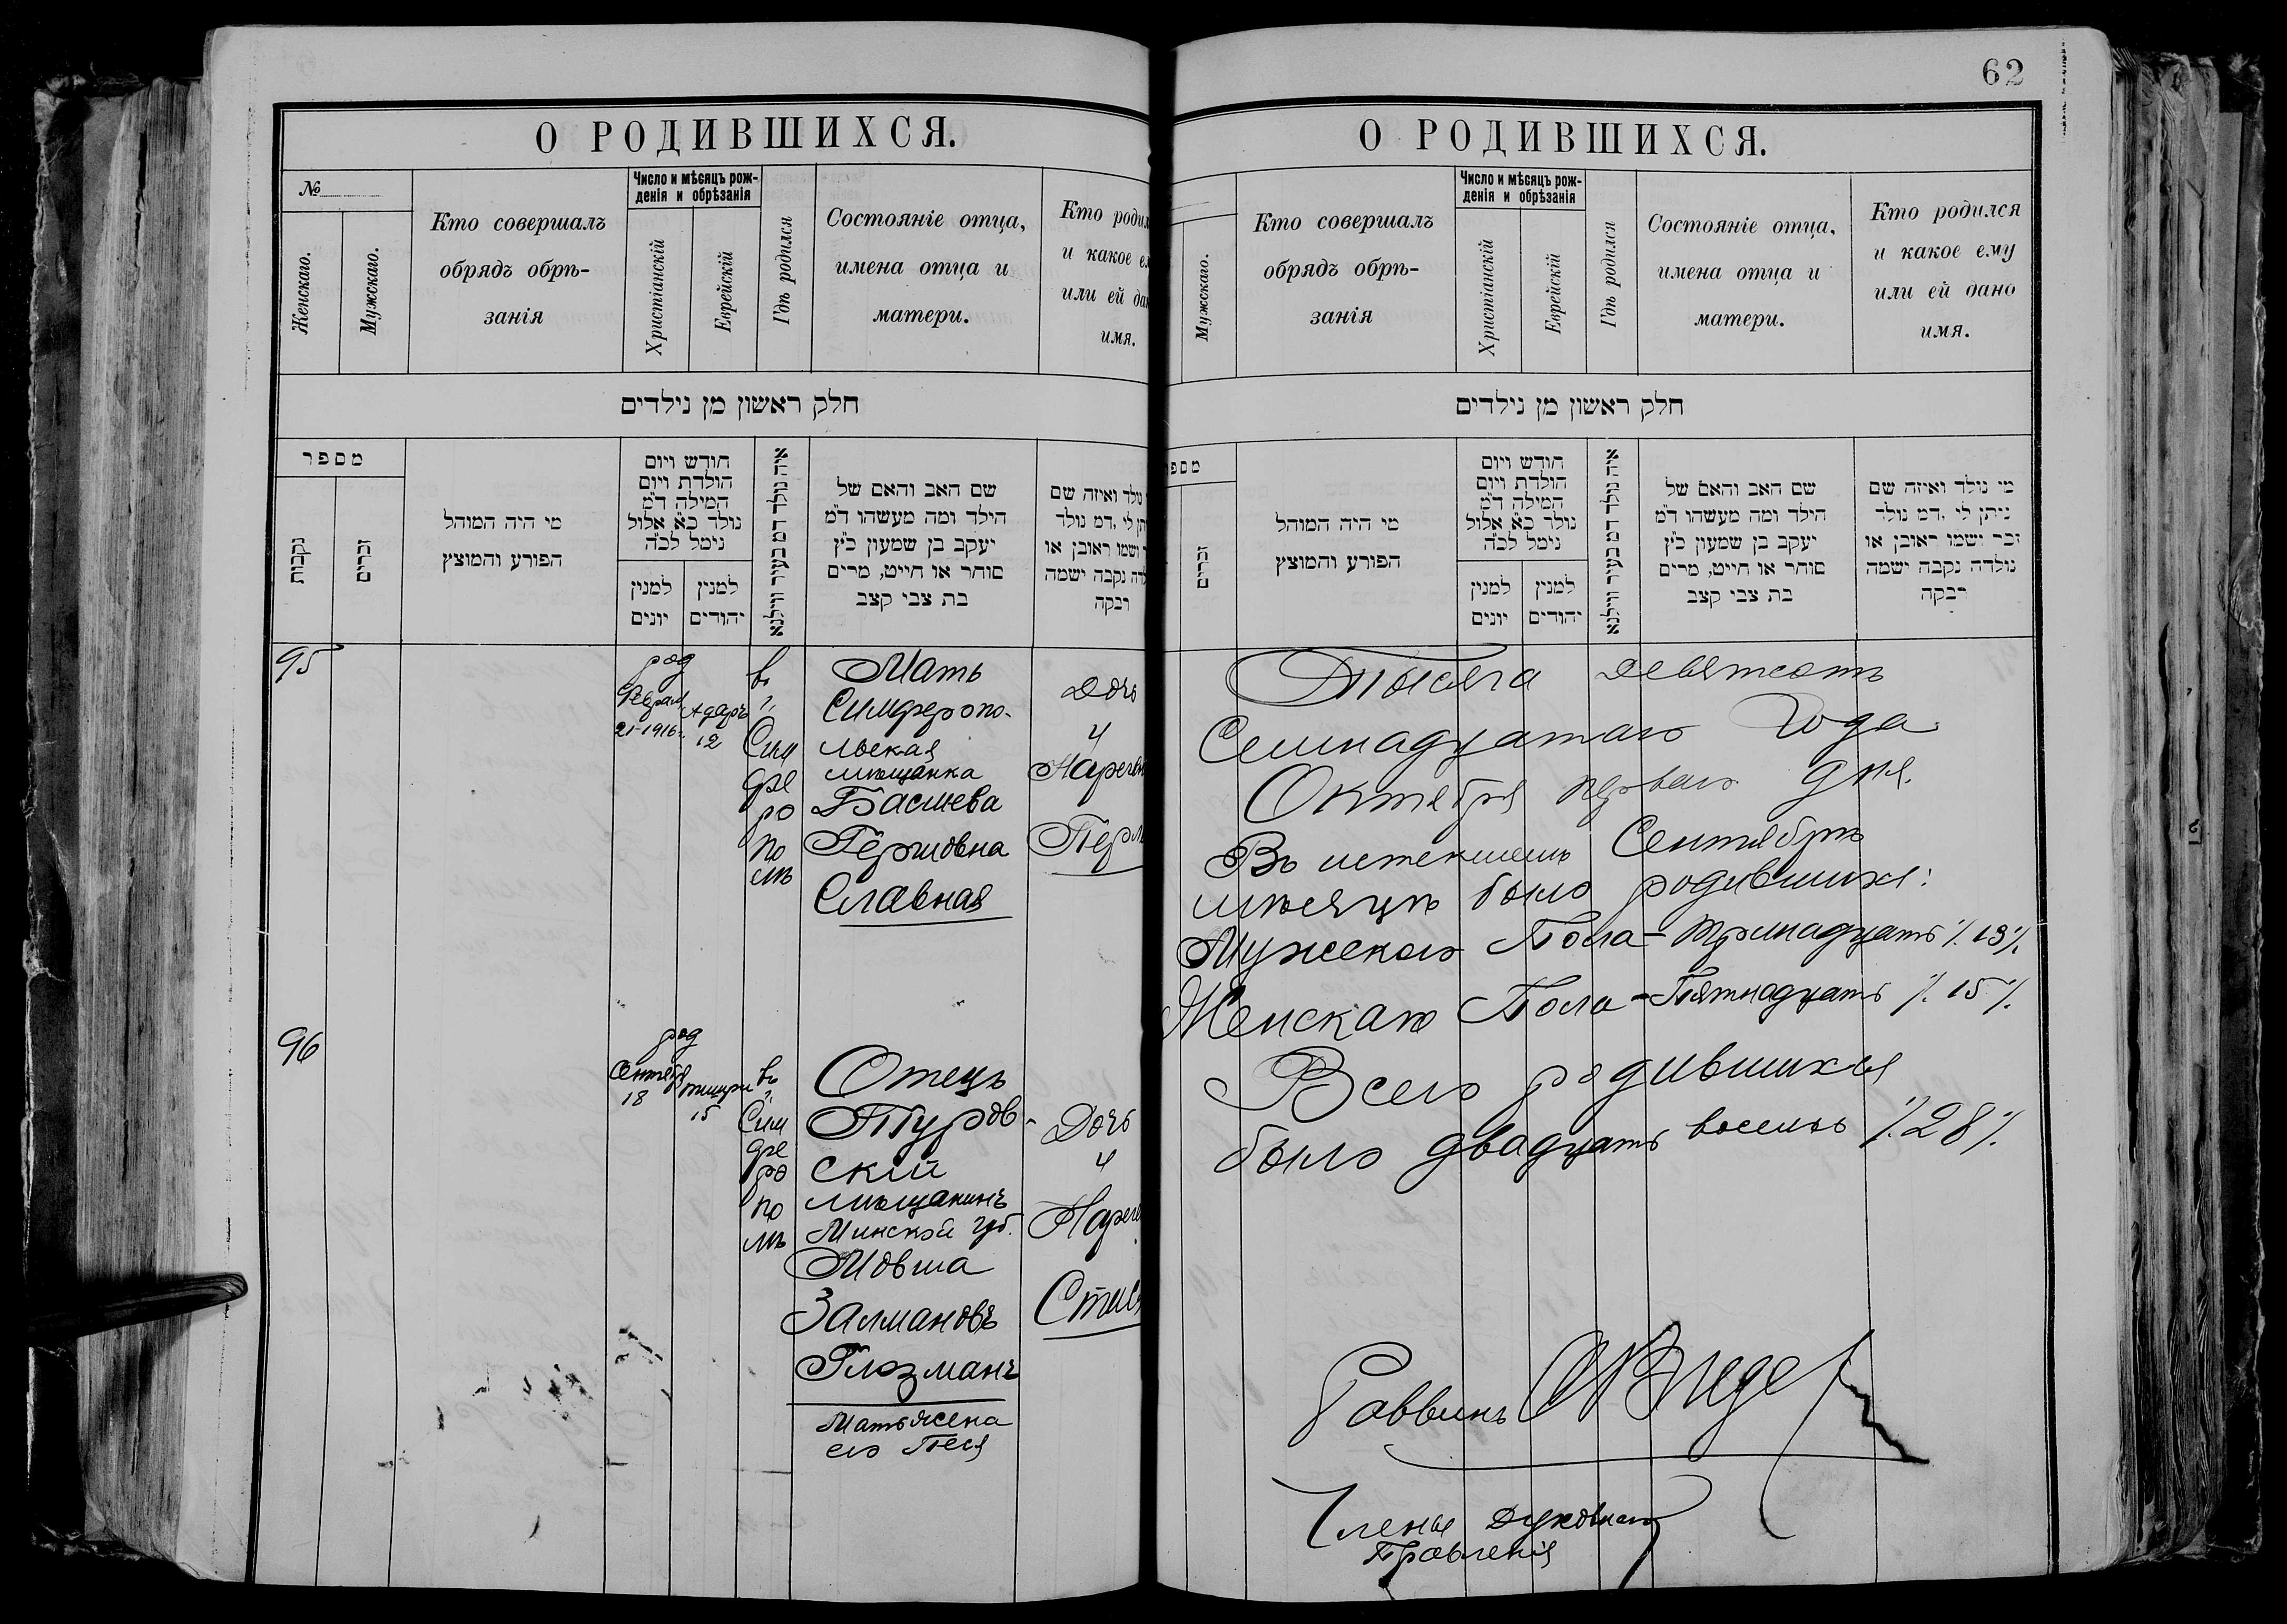 62
О РОДИВШИХСЯ.
№
Женскаго.
Мужскаго.
Кто совершалъ
обрядъ обрѣ-
занія
Число и мѣсяцъ рож-
денія и обрѣзанія
Христіанскій
Еврейскій
Гдѣ родился
Состояніе отца,
имена отца и
матери.
Кто родил
и какое е
или ей да
имя.
חלק ראשון מן נילדים
מספר
נקבות
זכרים
מי היה המוהל
הפורע והמוצץ
חודש ויום
הולדת ויום
המילה ד״מ
נולד כ״א אלול
נימל לכ״ה
למנין
יונים
למנין
יהודים
איה נולד דמ בעיר ווילנא
שם האב והאם של
הילד ומה מעשהו ד״מ
יעקב בן שמעון כ״ץ
סוחר או חייט, מרים
בת צבי קצב
נולד ואיזה שם
תן לי ,דמ נולד
ושמו ראובן או
לדה נקבה ישמה
רבקה
95
род
Феврал
21-1916г.
Адаръ
12
въ
г.
Сим
фе
ро
по
лѣ
Мать
Симферопо-
льская
мѣщанка
Басшева
Гершовна
Славная
Дочь
и
Наречен
Перл
96
род
Сентябр
18
Тишри
15
въ
г.
Сим
фе
ро
по
лѣ
Отецъ
Туров-
скій
мѣщанинъ
Минской губ.
Мовша
Залмановъ
Глозманъ
Мать жена
его Песя
Дочь
и
Нареч
О РОДИВШИХСЯ.
Мужскаго.
Кто совершалъ
обрядъ обрѣ-
занія
Число и мѣсяцъ рож-
денія и обрѣзанія
Христіанскій
Еврейскій
Гдѣ родился
Состояніе отца,
имена отца и
матери.
Кто родился
и какое ему
или ей дано
имя.
חלק ראשון מן נילדים
מספ
זכרים
מי היה המוהל
הפורע והמוצץ
חודש ויום
הולדת ויום
המילה ד״מ
נולד כ״א אלול
נימל לכ״ה
למנין
יונים
למנין
יהודים
איה נולד דמ בעיר ווילנא
שם האב והאם של
הילד ומה מעשהו ד״מ
יעקב בן שמעון כ״ץ
סוחר או חייט, מרים
בת צבי קצב
מי נולד ואיזה שם
ניתן לי ,דמ נולד
זכר ישמו ראובן או
נולדה נקבה ישמה
רבקה
Тысяча девятсотъ
Семнадцатаго года
Октября перваго дня.
Въ истекшемъ Сентябрѣ
мѣсяцѣ было родившихся:
Мужскаго Пола - Тринадцать /. 13 /.
Женскаго Пола - Пятнадцать /. 15 /.
Всего родившихся
было двадцать восемь /. 28 /.
Раввинъ
Члены Духовнаго
Правленія